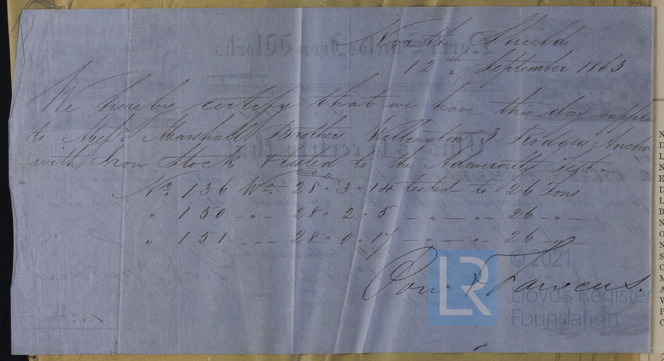 North Shields
12th September 1863
We hereby certify that we have this day
to Messrs Marshall Brothers Willington 3 Rodgers Anchors
with Iron Stock Tested to the Admiralty Test.
No. 136 Wt. 28 " 3 " 14 tested to 26 Tons
" 150 - " - 28 " 2 " 5 - " - " - 26 - " -
" 151 - " - 28 " 0 " 17 - " - " - 26 - " -
© 2021
LR
Lloyd's Register
Foundation